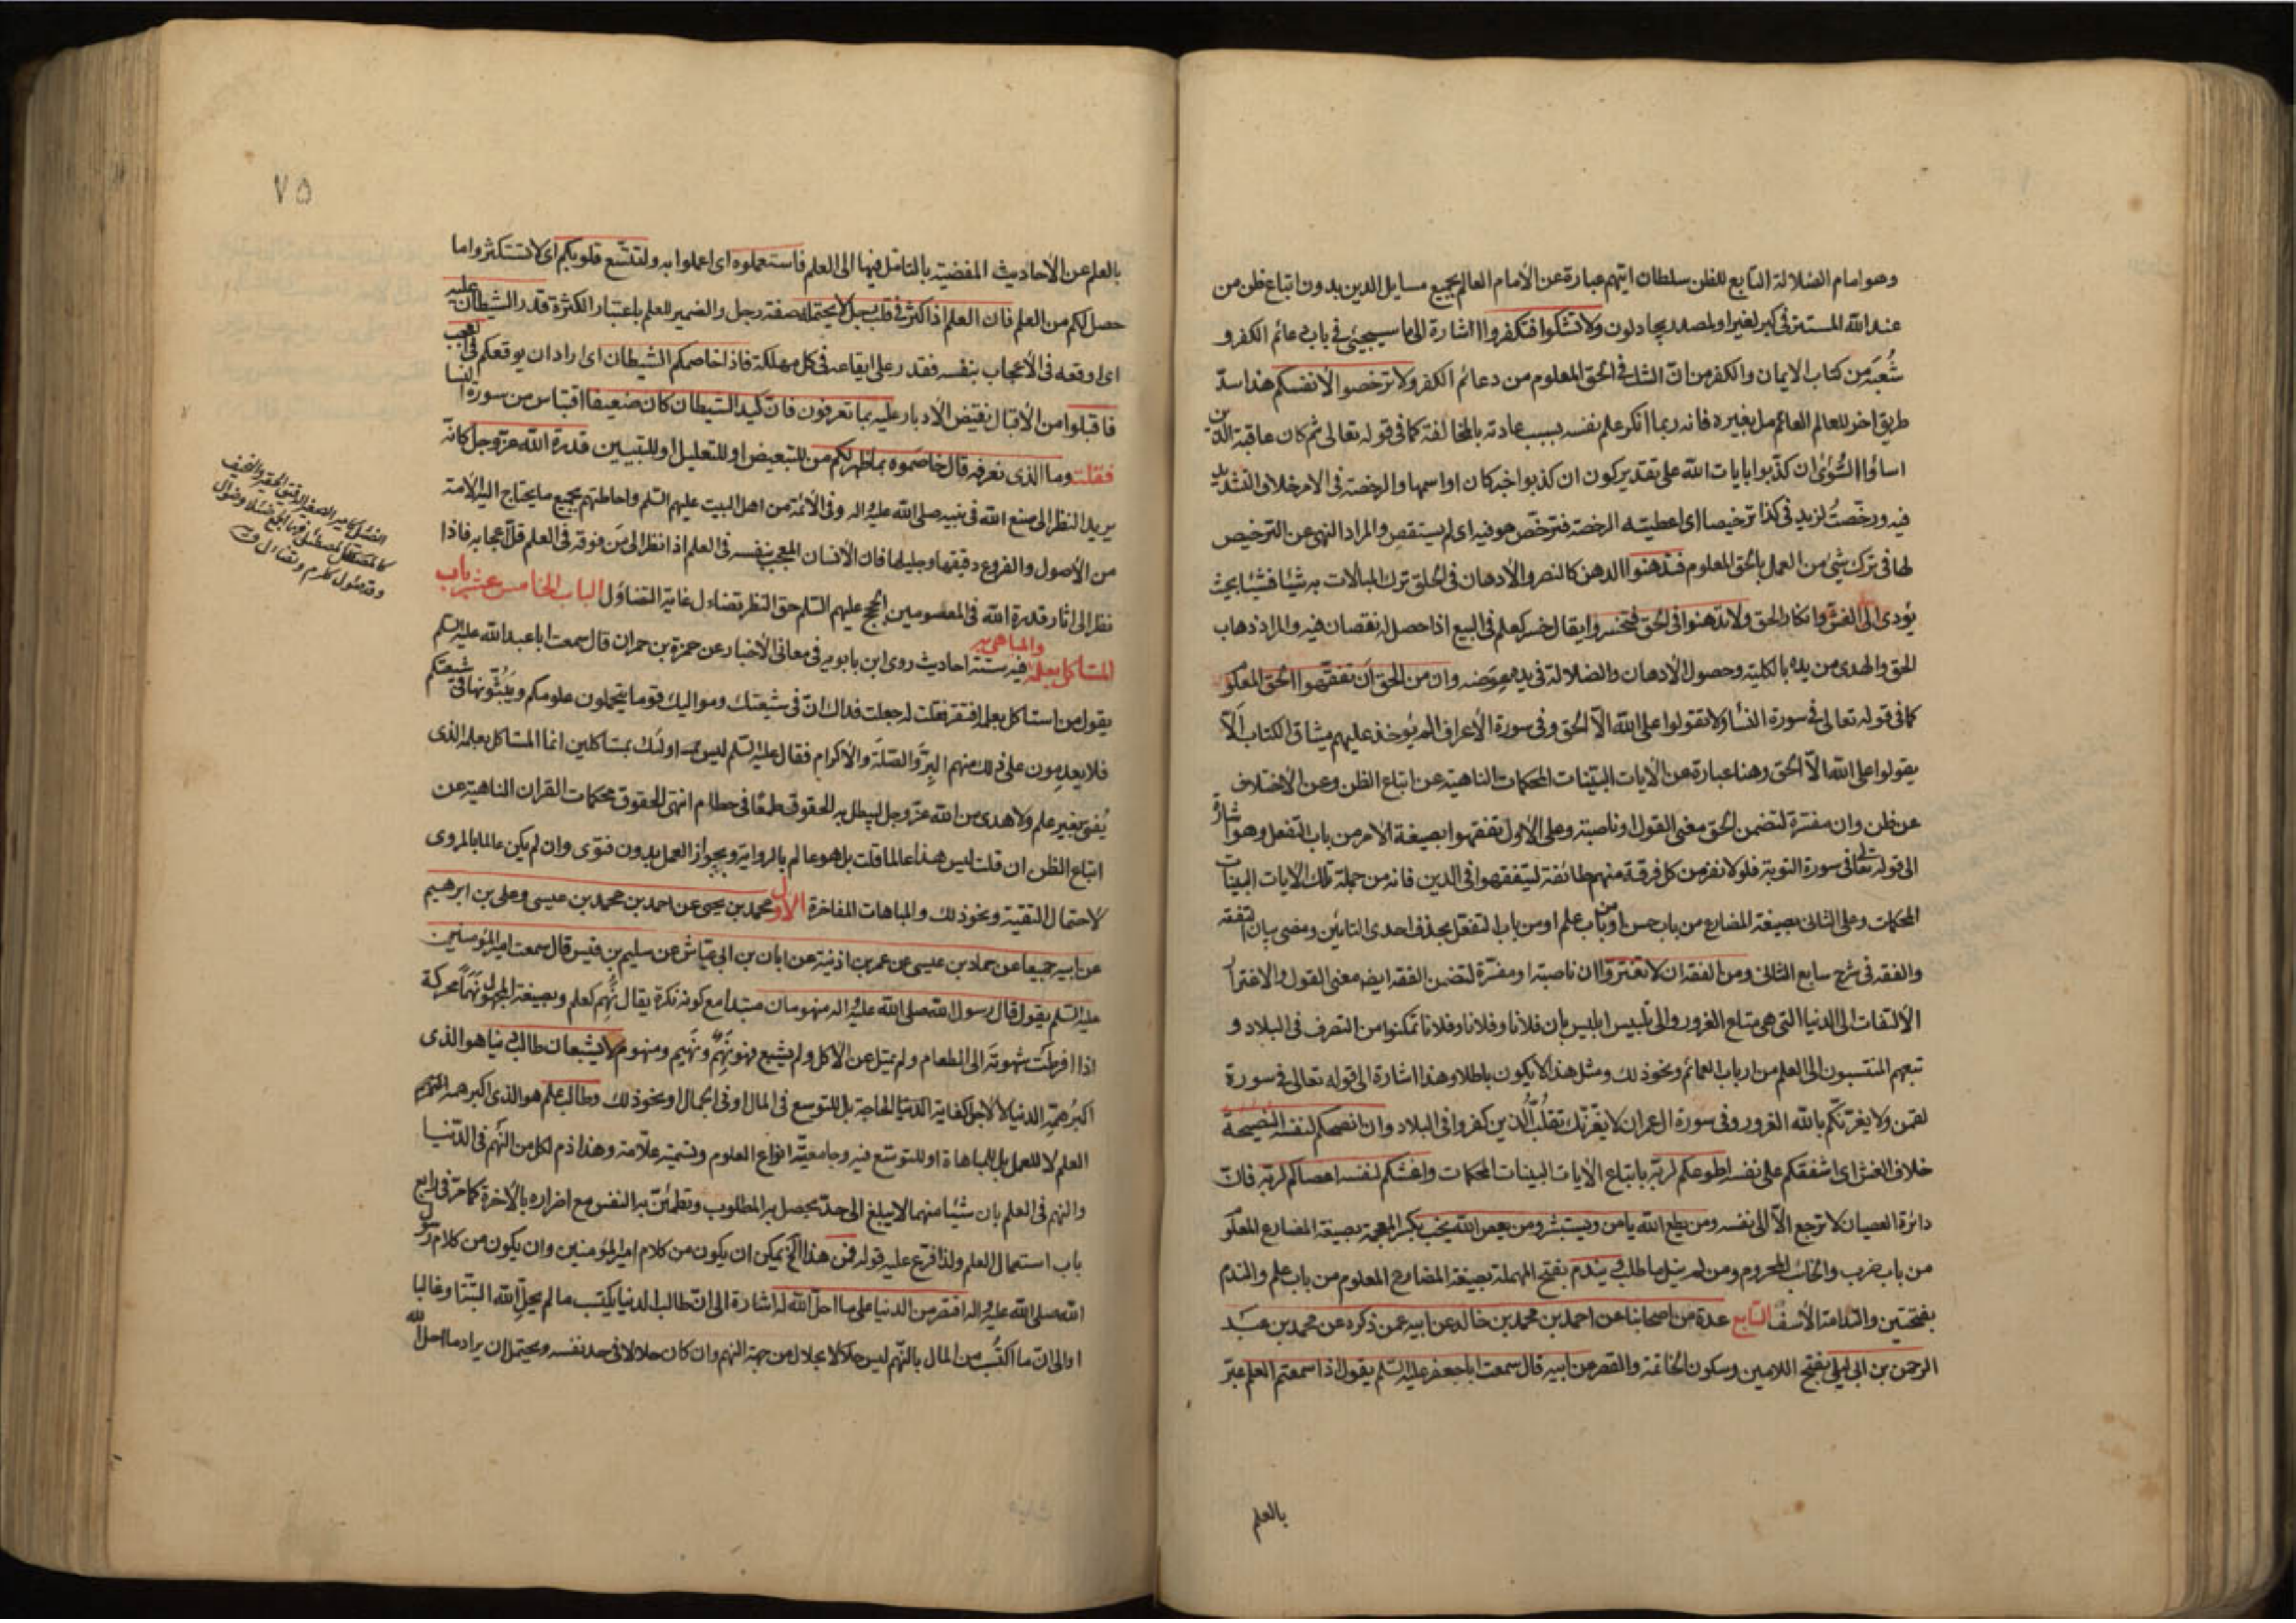 وهو امام الضلالة التابع للظن سلطان ايتهم عبارة عن الأمام العالم بجميع مسايل الدين بدون اتباع ظن من
عند الله المستتر في كبر لغير اولمصدر يجادلون ولا تشكوا فتكفروا اشارة الى ما سيجيئ في باب دعائم الكفر و
شُعَبه من كتاب الايمان والكفر من انّ الشك في الحق المعلوم من دعائم الكفر ولا ترخصوا لأنفسكم هذا سدّ
طريق اخر للعالم العائم مل بغيره فانه ربما انكر علم نفسه بسبب عادته بالمخالفة كما في قوله تعالى ثم كان عاقبة الذين
اساؤا السُّوٓى ان كذّبوا بايات الله على تقدير كون ان كذبوا خبر كان او اسمها والرخصة في الامر خلاف التشديد
فيه ورخّصتُ لزيد في كذا ترخيصا اى اعطيته الرخصة فترخّص هو فيه اى لم يستقص والمراد النهى عن الترخيص
لها في ترك شيئ من العمل بالحق المعلوم فتدهنوا الدهن كالنصر والأدهان في الخلق ترك المبالات به شيئا فشيئا بحيث
يؤدى الى الغش وانكار الحق ولا تدهنوا في الحق فتخسروا يقال خسر كعلم في البيع اذا حصل له نقصان فيه والمراد ذهاب
الحق والهدى من يده بالكلية وحصول الأدهان والضلالة في يده عوضه وان من الحق ان تفقهوا الحق المعلوم
كما في قوله تعالى في سورة النسأ ولا تقولوا على الله الّا الحق وفي سورة الأعراف الم يُوخذ عليهم ميثاق الكتاب الّا
يقولوا على الله الّا الحق وهنا عبارة عن الأيات البيّنات المحكمات الناهية عن اتباع الظن وعن الأختلاف
عن ظن وان مفسّرة لتضمن الحق معنى القول او ناصبة وعلى الأول تفقهوا بصيغة الأمر من باب التفعل وهو اشارة
الى قوله تعالى في سورة التوبة فلولا نفر من كل فرقة منهم طائفة ليتفقهوا في الدين فانه من جملة تلك الأيات البينات
المحكمات وعلى الثاني بصيغة المضارع من باب حسن او من باب علم او من باب التفعّل بحذف احدى التائين ومضى بيان التفقه
والفقه في شرح سابع الثاني ومن الفقه ان لا تغتروا ان ناصبة او مفسّرة لتضمن الفقه ايضا معنى القول والاغترار
الألتفات الى الدنيا التى هي متاع الغرور والى تلبيس ابليس بان فلانا وفلانا وفلانا تمكنوا من التصرف في البلاد و
تبعهم المنتسبون الى العلم من ارباب العمائم ونحو ذلك ومثل هذا لا يكون باطلا وهذا اشارة الى قوله تعالى في سورة
لقمن ولا يغرّنّكم بالله الغرور وفي سورة ال عمران لا يغرّنّك تقلّب الّذين كفروا في البلاد وان انصحكم لنفسه النصيحة
خلاف الغش اى اشفقكم على نفسه اطوعكم لربّه باتباع الأيات البينات المحكمات واغشكم لنفسه اعصاكم لربّه فانّ
دائرة العصيان لا ترجع الّا الى نفسه ومن يطع الله يامن ويستبشر ومن يعص الله يخب بكسر المعجمة بصيغة المضارع المعلوم
من باب ضرب والخائب المحروم ومن لم ينل ما طلب ويندم بفتح المهملة بصيغة المضارع المعلوم من باب علم والندم
بفتحتين والندامة الأسف التاسع عدة من اصحابنا عن احمد بن محمد بن خالد عن ابيه عمن ذكره عن محمد بن عبد
الرحمن بن ابى ليلى بفتح اللامين وسكون الخاتمة والقصر عن ابيه قال سمعت ابا جعفر عليه السّلم يقول اذا سمعتم العلم عبّر
بالعلم
٧٥
بالعلم عن الأحاديث المفضية بالتامّل فيها الى العلم فاستعملوه اى اعملوا به ولتتّسع قلوبكم اى لا تستكثروا ما
حصل لكم من العلم فان العلم اذا كثر في قلب رجل لا يحتمله صفة رجل والضمير للعلم باعتبار الكثرة قدر الشيطان عليه
اى اوقعه في الأعجاب بنفسه فقد قدر على ايقاعه في كل مهلكة فاذا خاصمكم الشيطان اى اراد ان يوقعكم في العجب
فاقبلوا من الأقبال نقيض الأدبار عليه بما تعرفون فانّ كيد الشيطان كان ضعيفا اقتباس من سورة النسا
فقلت وما الذى نعرفه قال خاصموه بما ظهر لكم من للتبعيض او للتعليل او للتبيين قدرة الله عزّ وجلّ كانّه
يريد النظر الى صنع الله في نبيه صلى الله عليه واله وفي الأئمة من اهل البيت عليهم السّلم واحاطتهم بجميع ما يحتاج اليه الأمة
من الأصول والفروع دقيقها وجليلها فان الأنسان المعجب بنفسه في العلم اذا نظر الى من فوقه في العلم قلّ اعجابه فاذا
نظر الى اثار قدرة الله في المعصومين الحجج عليهم السّلم حق النظر تضاءل غاية التضاؤل الباب الخامس عشر باب
المستاكل بعلمه والمباهى به فيه ستة احاديث روى ابن بابويه في معاني الأخبار عن حمزة بن حمران قال سمعت ابا عبد الله عليه السّلم
يقول من استاكل بعلمه افتقر فقلت له جعلت فداك انّ في شيعتك ومواليك قوما يتحملون علومكم ويَبُثّونها في شيعتكم
فلا يعدمون على ذلك منهم البِرّ والصّلة والأكرام فقال عليه السّلم ليس اولئك بمستاكلين انما المستاكل بعلمه الذى
يُفتى بغير علم ولا هدى من الله عزّ وجل ليبطل به الحقوق طمعًا في حطام انتهى الحقوق محكمات القران الناهية عن
اتباع الظن ان قلت ليس هذا عالما قلت بل هو عالم بالرواية ويجوز العمل بدون فتوى وان لم يكن عالما بالمروى
لاحتمال التقية ونحو ذلك والمباهات المفاخرة الأول محمد بن يحيى عن احمد بن محمد بن عيسى وعلى بن ابرهيم
عن ابيه جميعا عن حماد بن عيسى عن عمر بن اذينة عن ابان بن ابى عيّاش عن سليم بن قيس قال سمعت امير المؤمنين
عليه السّلم يقول قال رسول الله صلى الله عليه واله منهومان مبتدا مع كونه نكرة يقال نَهِم كعلم وبصيغة المجهول نَهَمًا محركة
اذا افرطت شهوته الى الطعام ولم يمتل عن الأكل ولم يشبع فهو نَهِمٌ ونَهيم ومنهوم لا يشبعان طالب دنيا هو الذى
اكبرُ همّه الدنيا لا لأجل كفاية الحاجة بل للتوسع في المال او في الجمال او نحو ذلك وطالب علم هو الذى اكبر همه
العلم لا للعمل بل للمباهاة او للتوسّع فيه وجامعيّة انواع العلوم وتسميته علّامة وهذا ذم لكل من النَّهَم في الدّنيا
والنهم في العلم بان شيئا منهما لا يبلغ الى حدّ يحصل به المطلوب وتطمئن به النفس مع اضراره بالأخرة كما مرّ في رابع
باب استعمال العلم ولذا فرّع عليه قوله فمن هذا الخ يمكن ان يكون من كلام امير المؤمنين وان يكون من كلام رسول
الله صلى الله عليه واله اقتصر من الدنيا على ما احلّ الله له اشارة الى ان طالب الدنيا يكتسب ما لم يحلّ الله البتّة وغالبا
او الى انّ ما اكتسب من المال بالنّهم ليس حلالا بحلال من جهة النهم وان كان حلالا في حد نفسه ويحتمل ان يراد ما احل الله